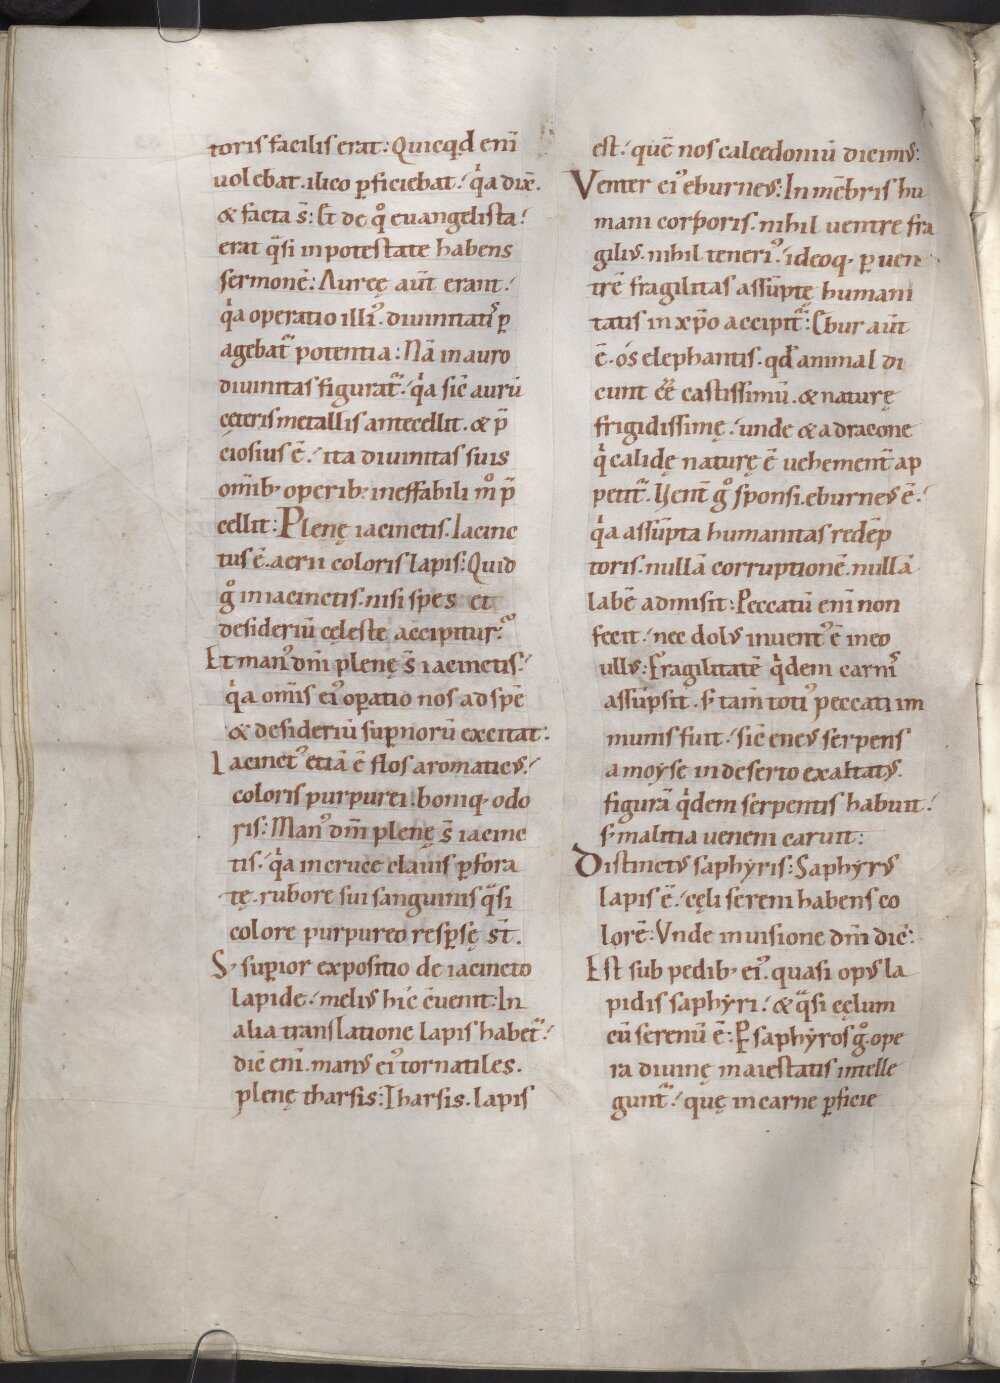 toris facilis erat: Quicq̣d enī
uolebat. ilico ꝑficiebat: qͥa dix̄.
& facta s̄: Et de qͦ euangelista:
erat qͣsi in potestate habens
sermonē: Aureę aūt erant:
qͥa operatio illiꝰ. diuinitatꝭ ꝑ
agebatᷣ potentia: Nā in auro
diuinitas figuratᷣ: qͥa sic̄ aurū
cęteris metallis antecellit. & p̄
ciosius ē: ita diuinitas suis
om̄ib; operib; ineffabili mͦ p̄
cellit: Plenę iacinctis. Iacinc
tus ē. aerii coloris lapis: Quid
gͦ in iacinctis. nisi spes et
desideriū cęleste accipitur?
Et manꝰ dn̄i plenę s̄ iacinctis:
qͥa om̄is eiꝰ oꝑatio nos ad spē
& desideriū suꝑnorū excitat:
Iacinctꝰ etiā ē flos aromaticus:
coloris purpurei. boniq; odo
ris: Manꝰ dn̄i plenę s̄ iacinc
tis: qͥa in cruce clauis ꝑfora
tę. rubore sui sanguinis qͣsi
colore purpureo resꝑsę st̄.
S; suꝑior expositio de iacincto
lapide: melius hic̄ ēuenit: In
alia translatione lapis habetᷣ:
dic̄ enī. manus eiꝰ tornatiles.
plenę tharsis: Tharsis. lapis
est: quē nos calcedoniū dicimus:
Venter eiꝰ eburneus: In mēbris hu
mani corporis. nihil uentre fra
gilius. nihil teneriꝰ: ideoq; ꝑ uen
trē fragilitas assūptę humani
tatis in xp̄o accipitᷣ: Ebur aūt
ē. os elephantis. qd̄ animal di
cunt ee̅ castissimū. & naturę
frigidissimę: unde & a dracone
qͥ calidę naturę ē uehementͣ ap
petitᷣ. Uent̄ gͦ sponsi. eburneus ē:
qͥa assūpta humanitas redēp
toris. nullā corruptionē. nullā
labē admisit: Peccatū enī non
fecit: nec dolus inuentꝰ ē in eo
ullus: Fragilitatē qͥdem carnꝭ
assūpsit. s; tam̄ totiꝰ peccati im
munis fuit: sic̄ eneus serpens
a moyse in deserto exaltatus.
figurā qͥdem serpentis habuit:
s; malitia ueneni caruit:
Distinctus saphyris: Saphyrus
lapis ē: cęli sereni habens co
lorē: Vnde in uisione dn̄i dic̄:
Est sub pedib; eiꝰ. quasi opus la
pidis saphyri: & qͣsi cęlum
cū serenū ē: Ꝑ saphyros gͦ. ope
ra diuinę maiestatis intelle
guntᷣ: quę in carne ꝑficie